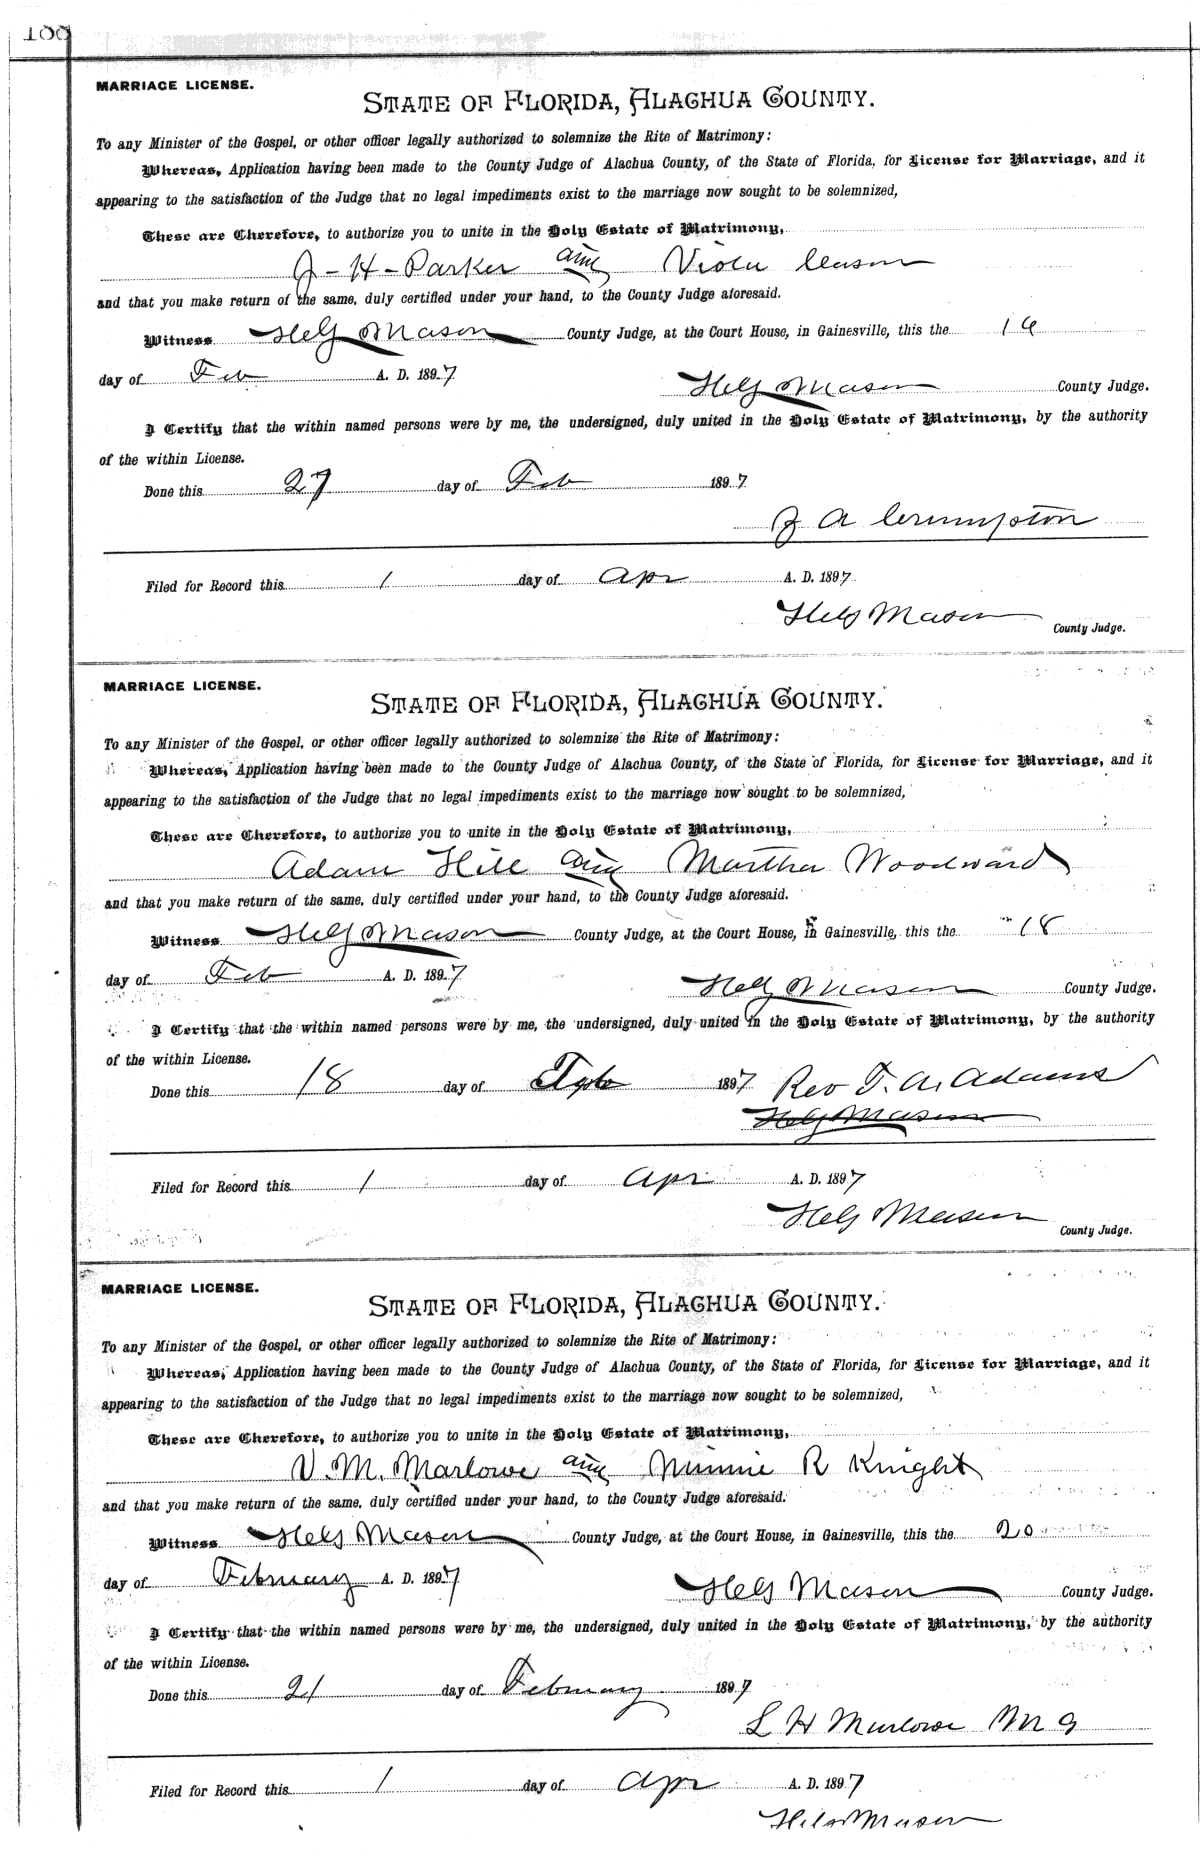 188
MARRIAGE LICENSE.
STATE OF FLORIDA, ALACHUA COUNTY.
To any Minister of the Gospel, or other officer legally authorized to solemnize the Rite of Matrimony:
Whereas, Application having been made to the County Judge of Alachua County, of the State of Florida, for License for Marriage, and it
appearing to the satisfaction of the Judge that no legal impediments exist to the marriage now sought to be solemnized,
These are Therefore, to authorize you to unite in the Holy Estate of Matrimony,
J-H-Parker and Viola
and that you make return of the same, duly certified under your hand, to the County Judge aforesaid.
Witness Mason County Judge, at the Court House, in Gainesville, this the 16
day of Feb A. D. 1897
Mason County Judge.
I Certify that the within named persons were by me, the undersigned, duly united in the Holy Estate of Matrimony, by the authority
of the within License.
Done this 27 day of Feb 1897
A Crumpton
Filed for Record this 1 day of Apr A. D. 1897
Mason
County Judge.
MARRIAGE LICENSE.
STATE OF FLORIDA, ALACHUA COUNTY.
To any Minister of the Gospel, or other officer legally authorized to solemnize the Rite of Matrimony:
Whereas, Application having been made to the County Judge of Alachua County, of the State of Florida, for License for Marriage, and it
appearing to the satisfaction of the Judge that no legal impediments exist to the marriage now sought to be solemnized,
These are Therefore, to authorize you to unite in the Holy Estate of Matrimony,
Adam Hill and Martha Woodward
and that you make return of the same, duly certified under your hand, to the County Judge aforesaid.
Witness Mason County Judge, at the Court House, in Gainesville, this the 18
day of Feb A. D. 1897
Mason County Judge.
I Certify that the within named persons were by me, the undersigned, duly united in the Holy Estate of Matrimony, by the authority
of the within License.
Done this 18 day of Feb 1897 Rev T. A. Adams
Mason
Filed for Record this 1 day of Apr A. D. 1897
Mason
County Judge.
MARRIAGE LICENSE.
STATE OF FLORIDA, ALACHUA COUNTY.
To any Minister of the Gospel, or other officer legally authorized to solemnize the Rite of Matrimony:
Whereas, Application having been made to the County Judge of Alachua County, of the State of Florida, for License for Marriage, and it
appearing to the satisfaction of the Judge that no legal impediments exist to the marriage now sought to be solemnized,
These are Therefore, to authorize you to unite in the Holy Estate of Matrimony,
V. M. Marlowe and Minnie R Knight
and that you make return of the same, duly certified under your hand, to the County Judge aforesaid.
Witness Mason County Judge, at the Court House, in Gainesville, this the 20
day of February A. D. 1897
Mason County Judge.
I Certify that the within named persons were by me, the undersigned, duly united in the Holy Estate of Matrimony, by the authority
of the within License.
Done this 21 day of February 1897
L H Marlowe M G
Filed for Record this 1 day of Apr A. D. 1897
Mason